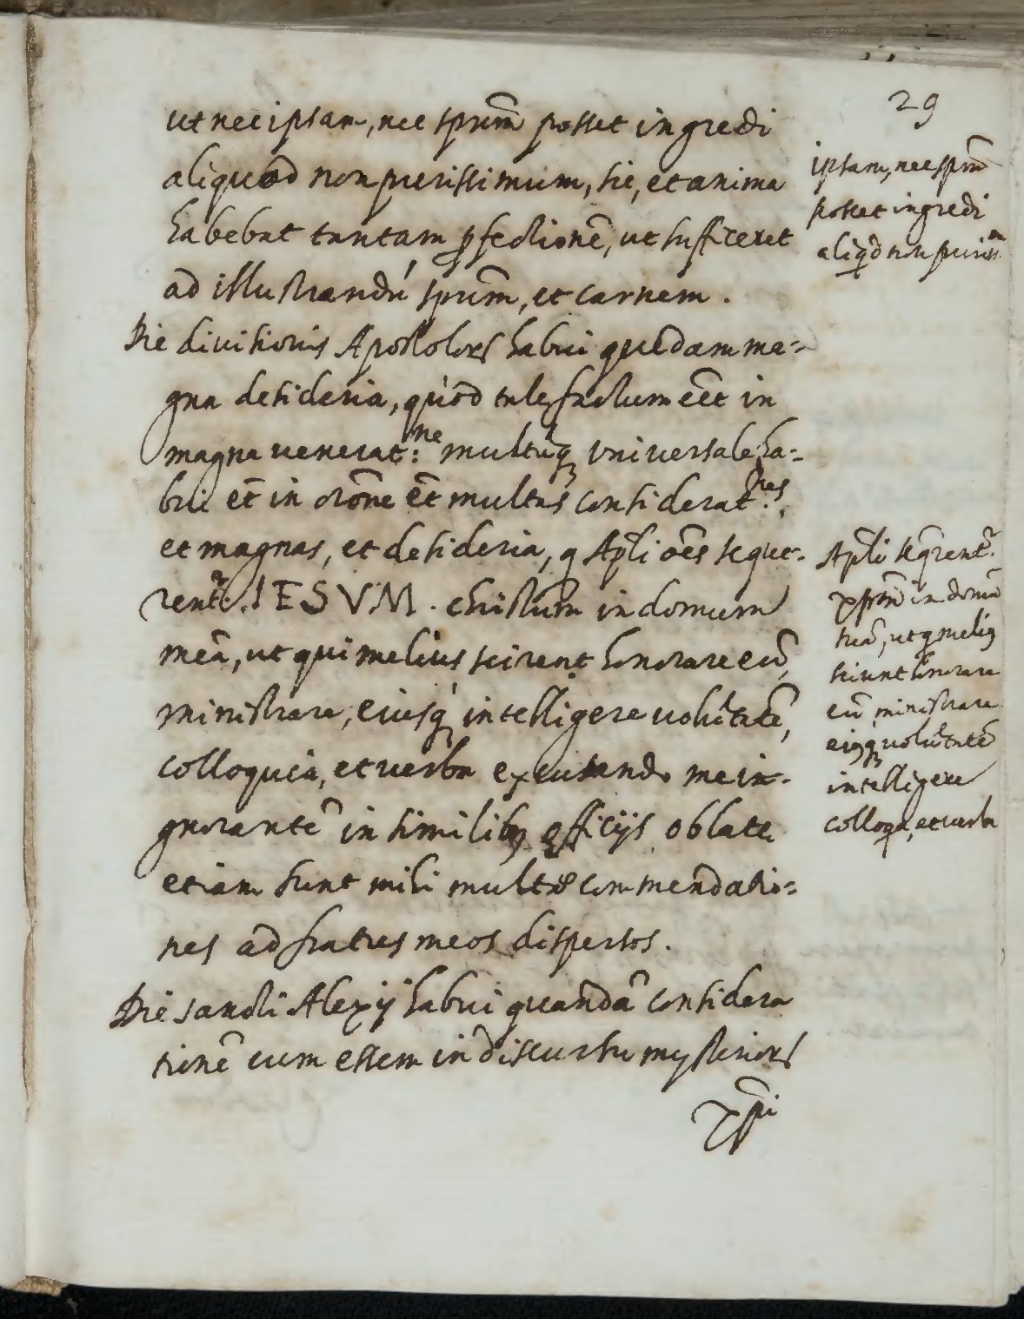 29
ut nec ipsam, nec spūm posset ingredi
aliquod non purissimum, sic, et anima
habebat tantam ꝑfectionē, ut sufficeret
ad illustrandū spūm, et carnem.
Die divisionis Apostolorꝭ habui quędam ma-
gna desideria, quòd tale factum eēt in
magna venerat:ne multūqꝫ universale ha-
bui et̄ in orōne et̄ multas considerat:nes,
et magnas, et desideria, q Apłi oēs seque-
rentr. IESVM. christum in domum
meā, ut qui melius scirent honorare eū,
ministrare, eiusq; intelligere volūtatē,
colloquia, et verba excusando me in-
gnorantē in similibꝫ officijs oblatę
etiam sunt mihi multę commendatio-
nes ad fratres meos dispersos.
Die sancti Alexij habui quandā considera
tionē cum essem in discursu mysteriorꝭ
xp̄i
ipsam, nec spūm
posset ingredi
aliqd non puriss.m
Apłi seqrentr.
xp̄m in domū
meā, ut q melius
sciunt honorare
eū ministrare
eiusqꝫ volūtatē
intelligere
colloqa, et verba